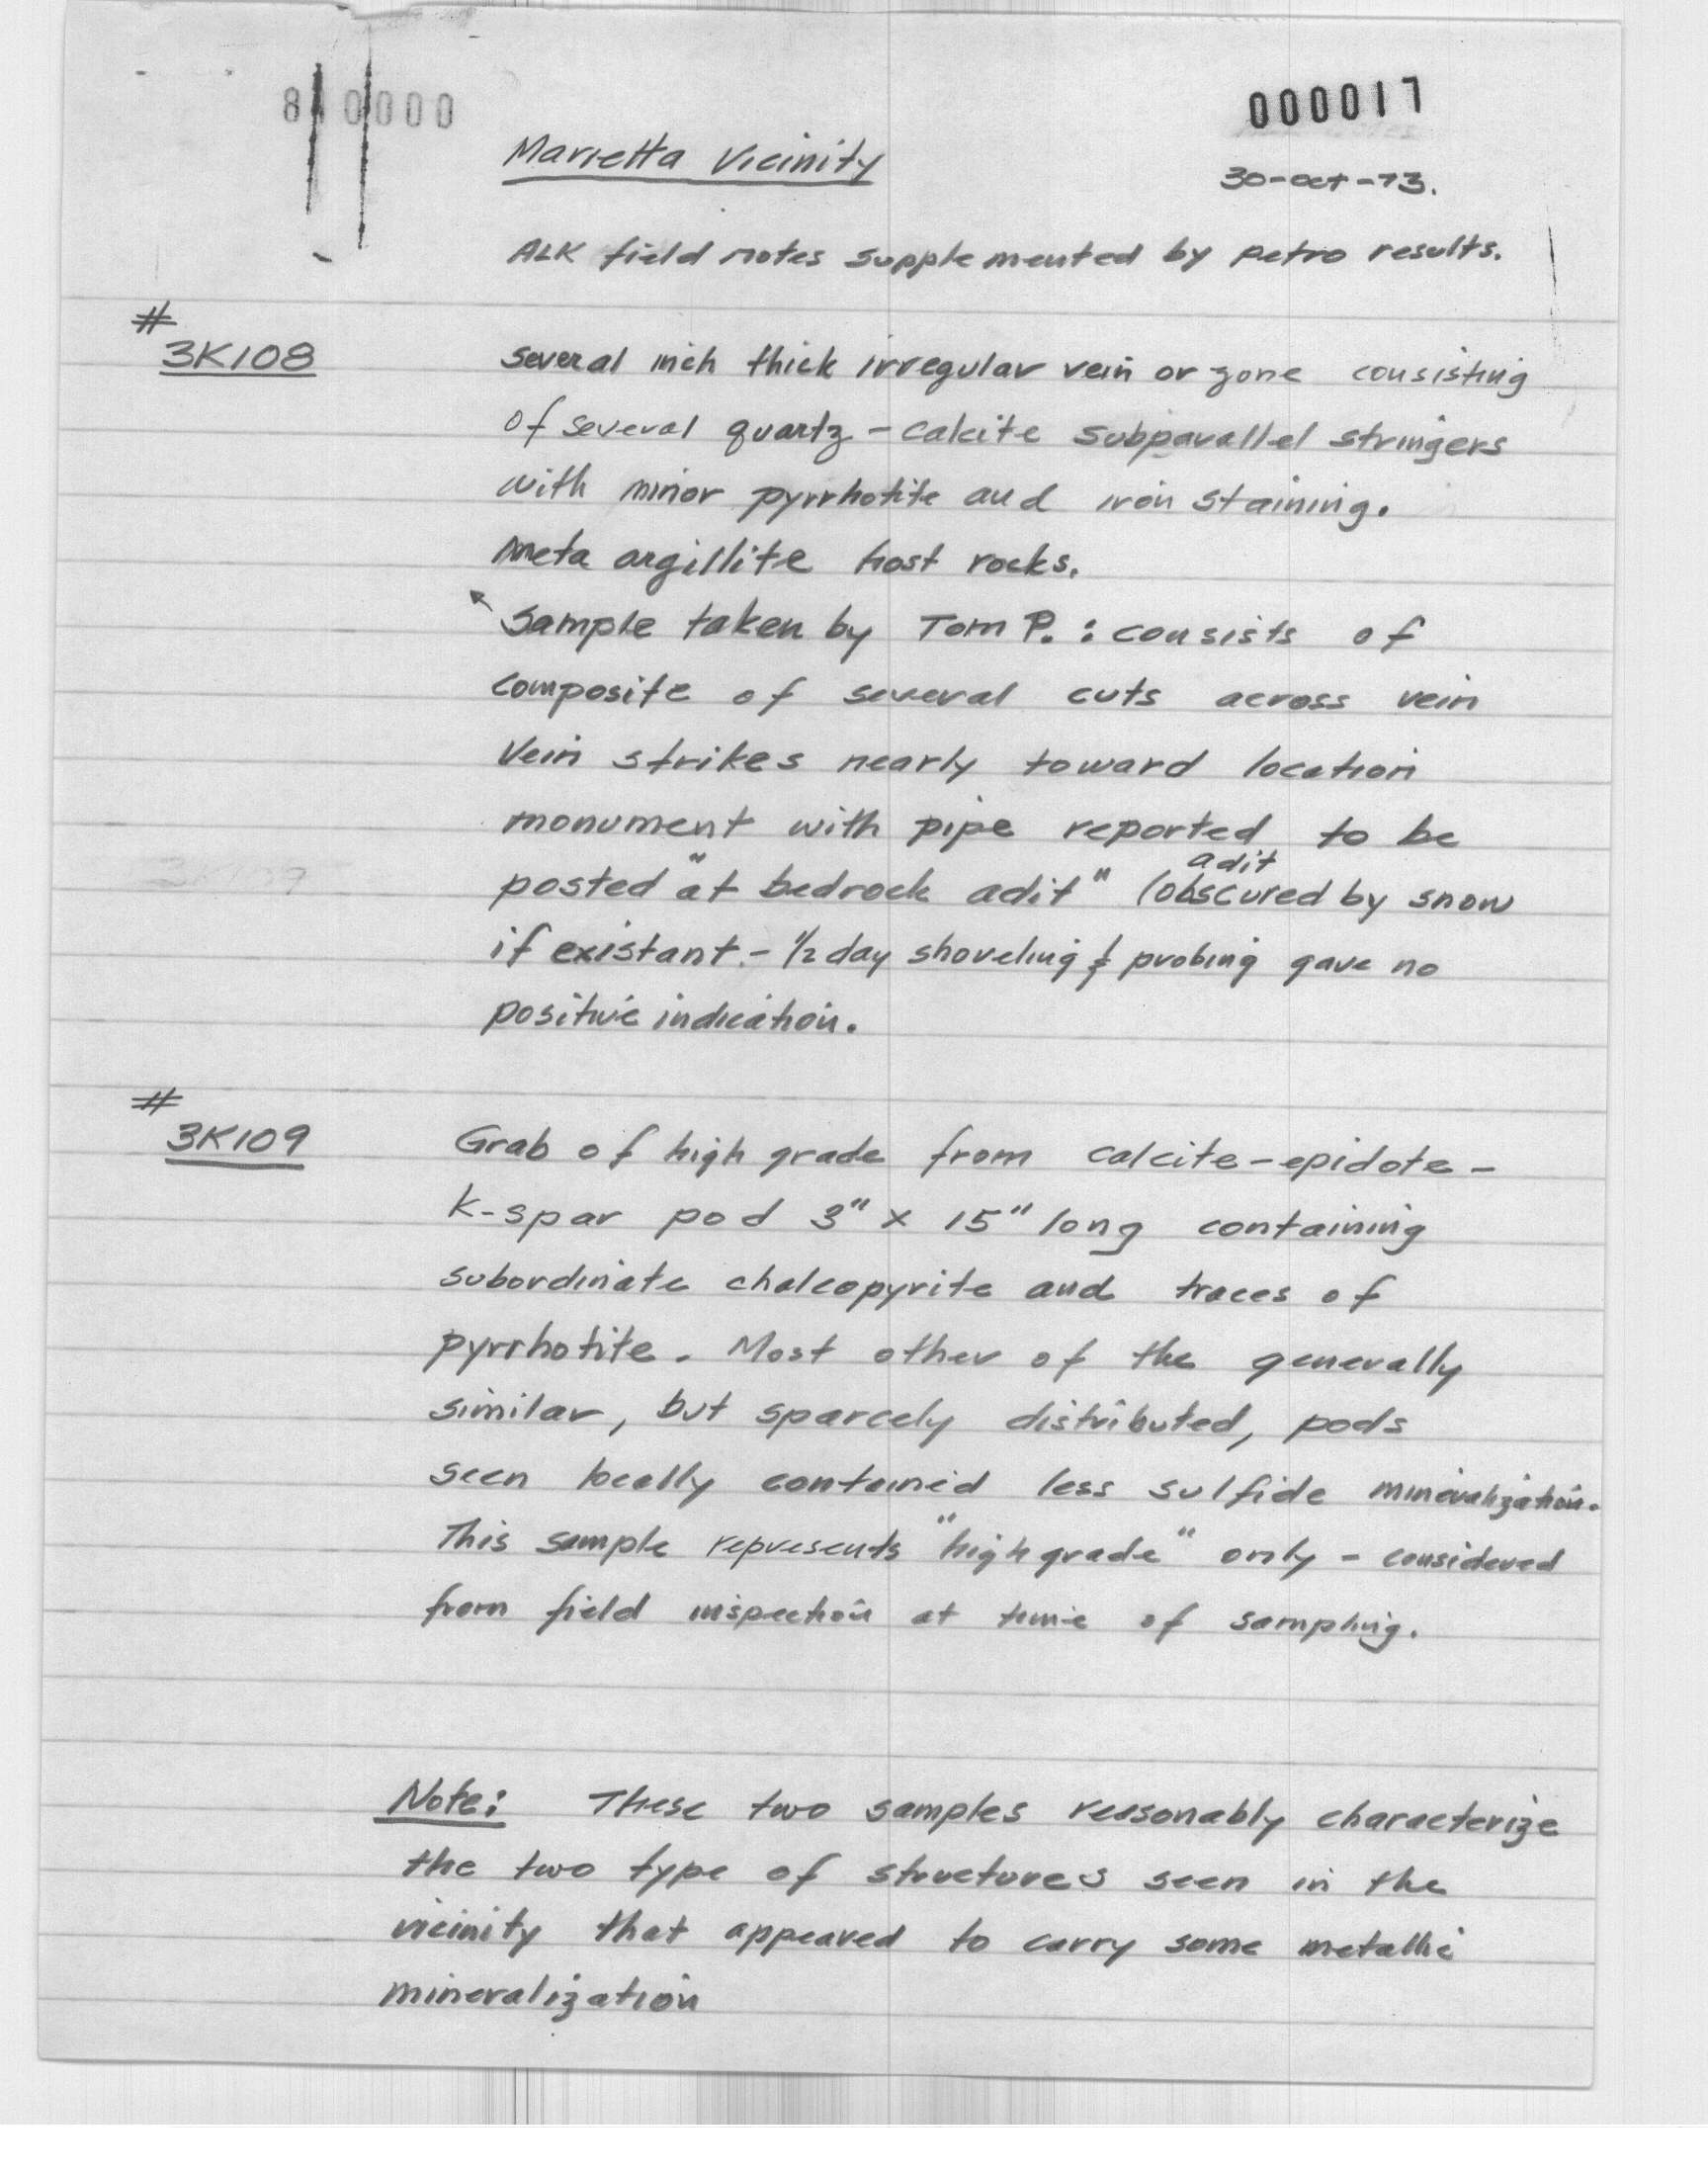 810000
000017
Marietta Vicinity
30-Oct-73.
ALK field notes supplemented by petro results.
#
3K108
several inch thick irregular vein or zone consisting
of several quartz-calcite subparallel stringers
with minor pyrrhotite and iron staining.
meta argillite host rocks.
Sample taken by Tom P. : consists of
composite of several cuts across vein
Vein strikes nearly toward location
monument with pipe reported to be
adit
posted "at bedrock adit" (obscured by snow
if existant - 1/2 day shoveling & probing gave no
positive indication.
3K109
#
3K109
Grab of high grade from calcite-epidote-
K-spar pod 3" x 15" long containing
subordinate chalcopyrite and traces of
pyrrhotite. Most other of the generally
similar, but sparcely distributed, pods
seen locally contained less sulfide mineralization.
This sample represents "high grade" only - considered
from field inspection at time of sampling.
Note: These two samples reasonably characterize
the two type of structures seen in the
vicinity that appeared to carry some metallic
mineralization